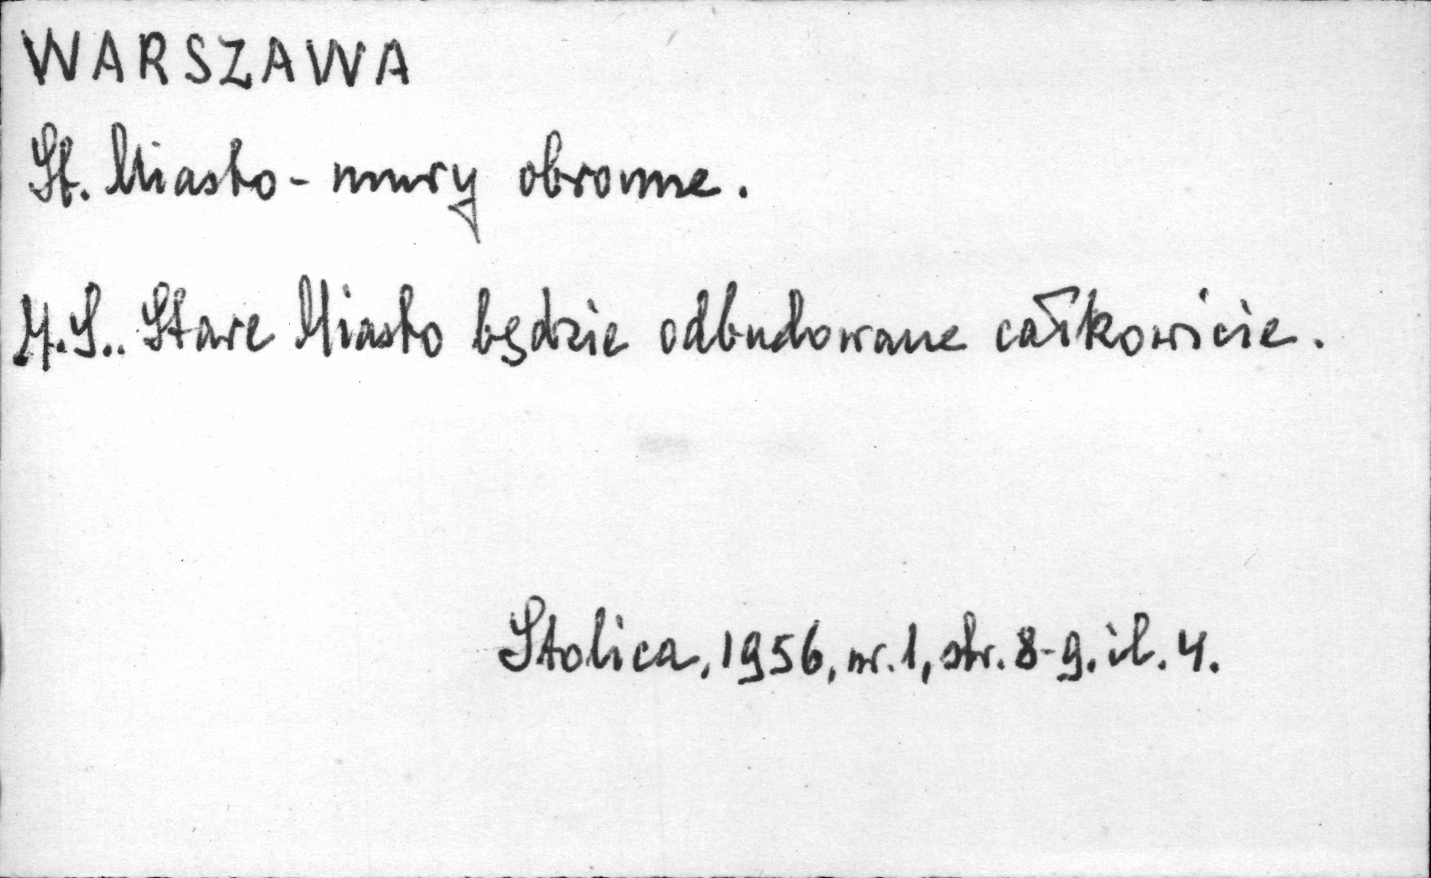 WARSZAWA
St. Miasto - mury obronne.
M.S.. Stare Miasto będzie odbudowane całkowicie.
Stolica, 1956, nr. 1, str. 8-9. il. 4.